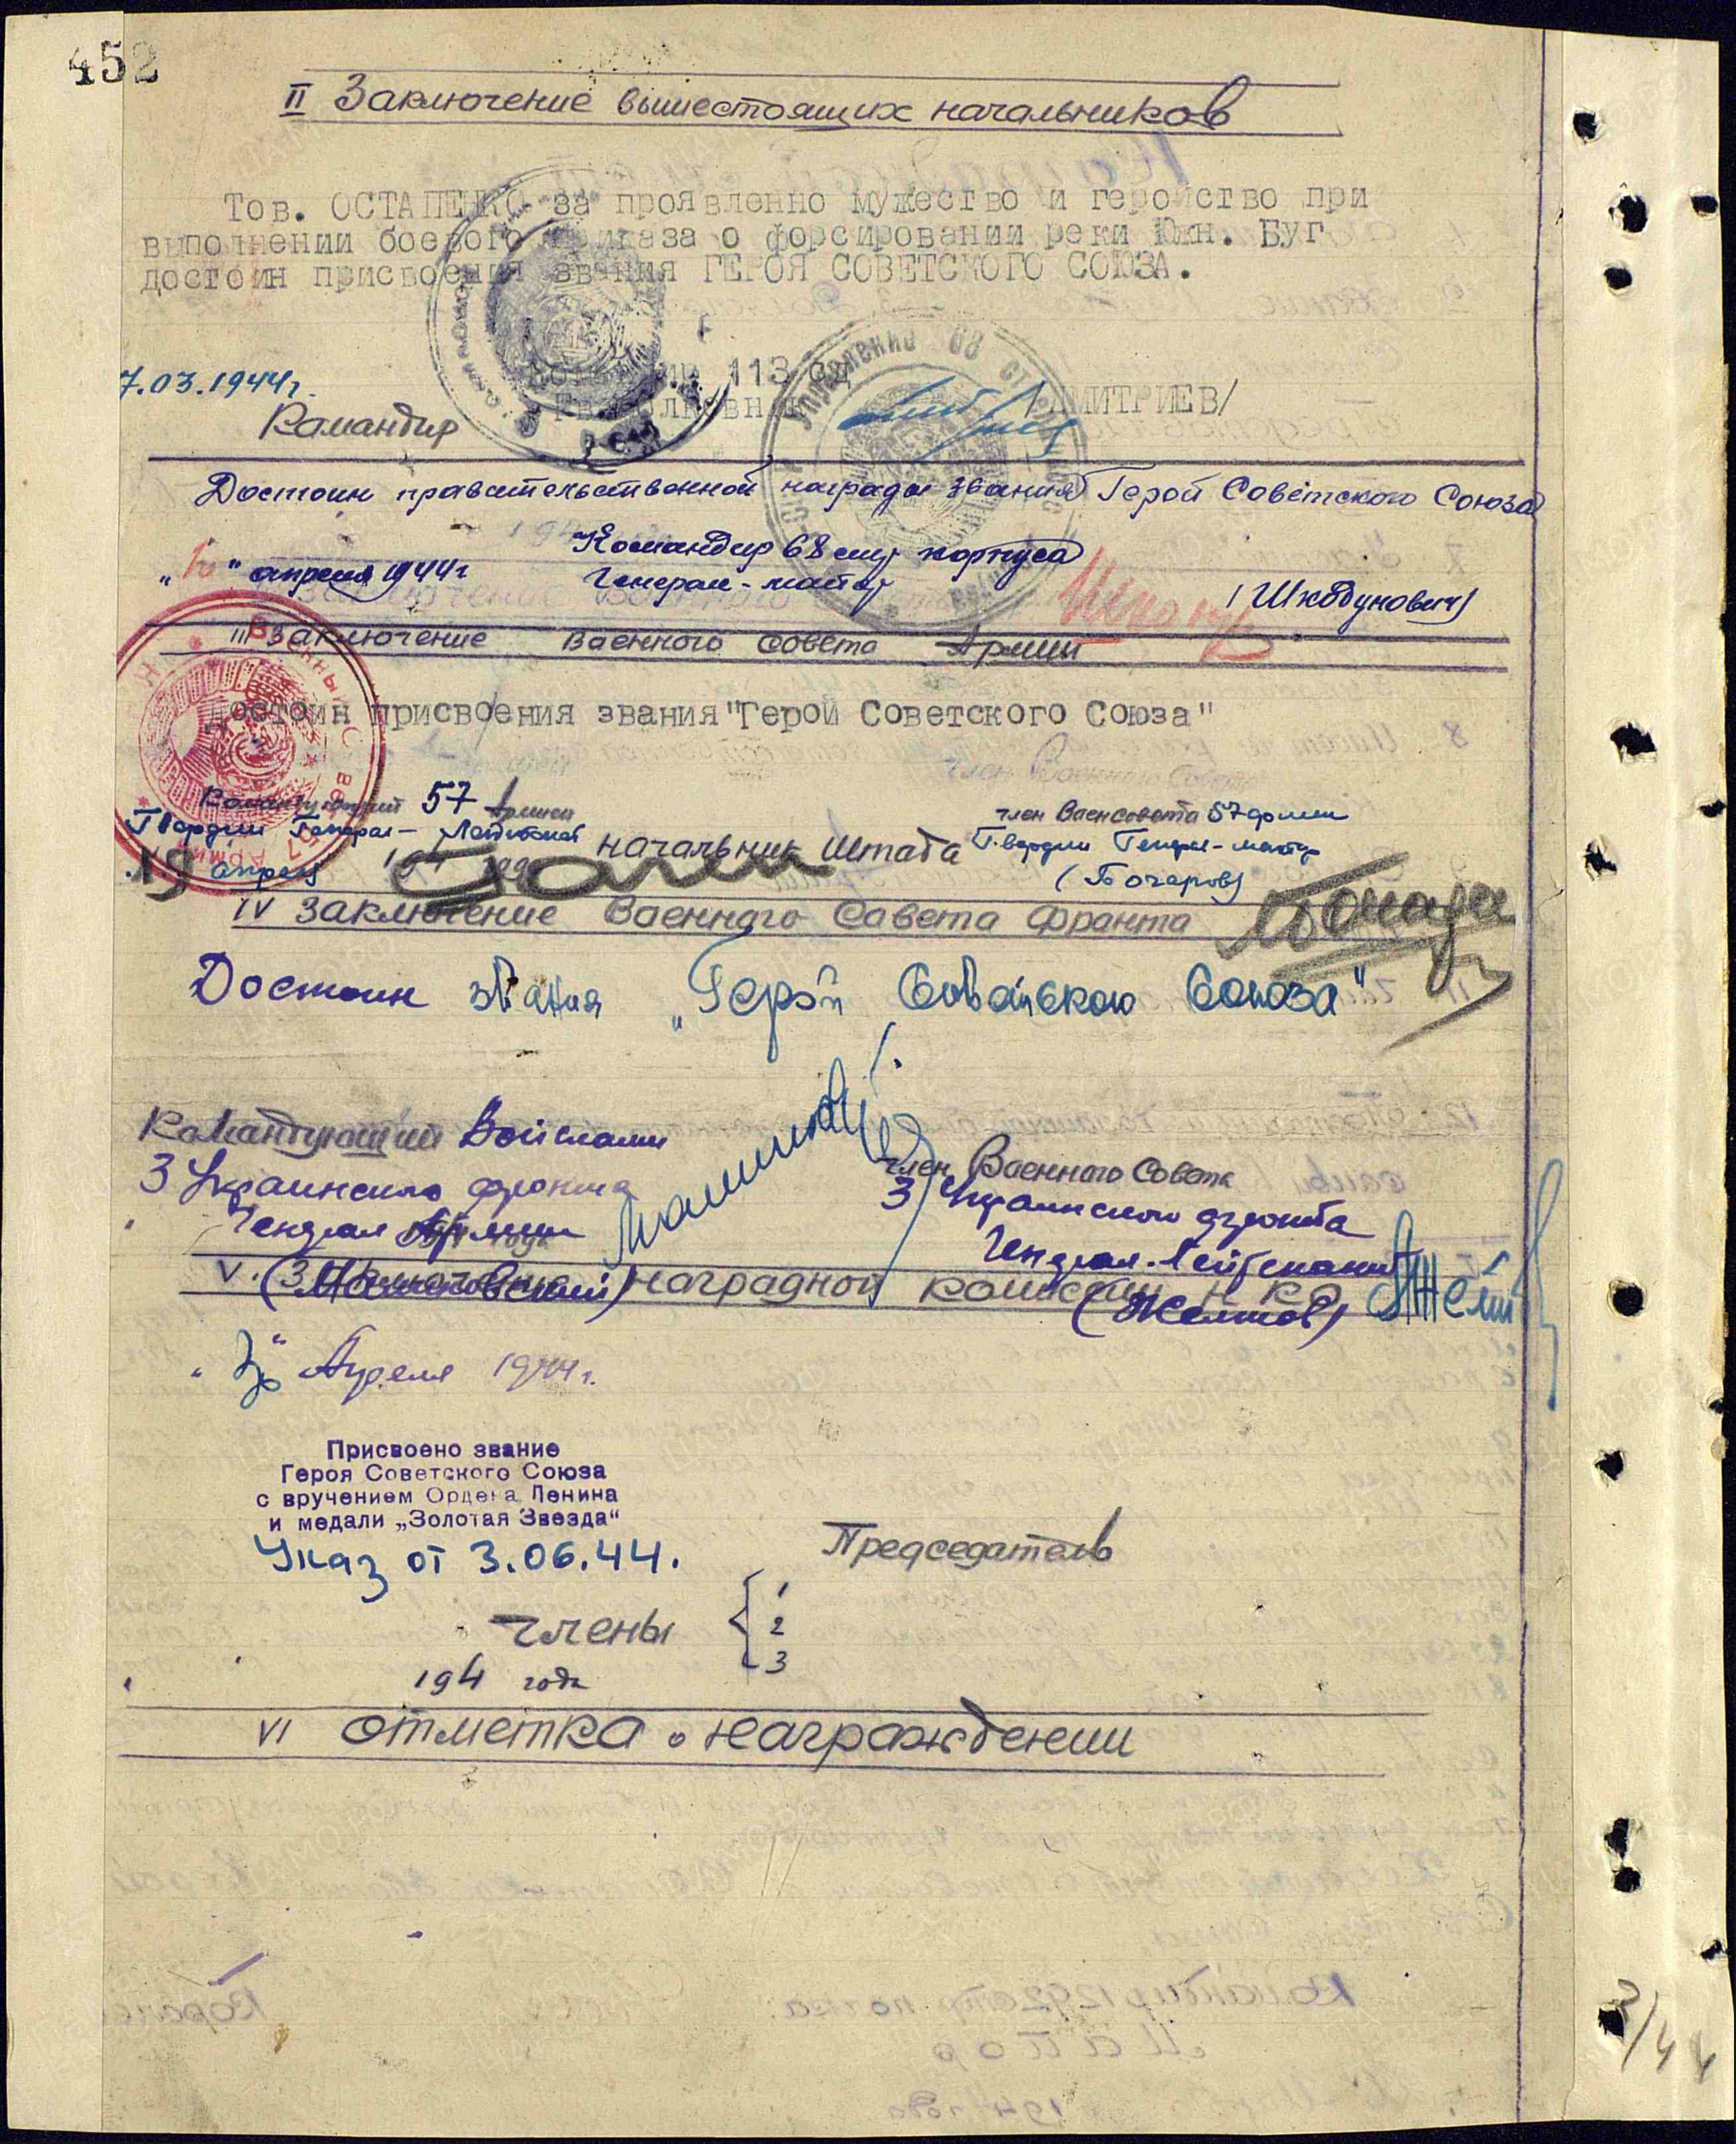 452
II Заключение вышестоящих начальников
Тов. ОСТАПЕНКО за проявленно мужество и геройство при
выполнении боевого приказа о форсировании реки Южн. Буг
достоин присвоения звания ГЕРОЯ СОВЕТСКОГО СОЮЗА.
113 сд
7.03.1944г.
/ДМИТРИЕВ/
Командир
Достоин правительственной награды звания Герой Советского Союза
Командир 68 стр корпуса
" апреля 1944г
Генерал-майор
(Шкодунович)
III Заключение Военного Совета Армии
Достоин присвоения звания "Герой Советского Союза"
Командующий 57 Армии
Гвардии Генерал-Лейтенант
начальник штаба
член Военсовета 57 армии
Гвардии Генерал-майор
(Бочаров)
19 апреля 194
IV Заключение Военного Совета Фронта
Достоин звания „Герой Советского Союза"
Командующий Войсками
3 Украинского фронта
Генерал Армии
(Малиновский)
Член Военного Совета
3 Украинского фронта
Генерал-Лейтенант
(Желтов)
V. Заключение наградной комиссии НКО
Апреля 1944г.
Присвоено звание
Героя Советского Союза
с вручением Ордена Ленина
и медали „Золотая Звезда"
Указ от 3.06.44.
Председатель
Члены
1
2
3
194 года
VI отметка о награждении
3/44